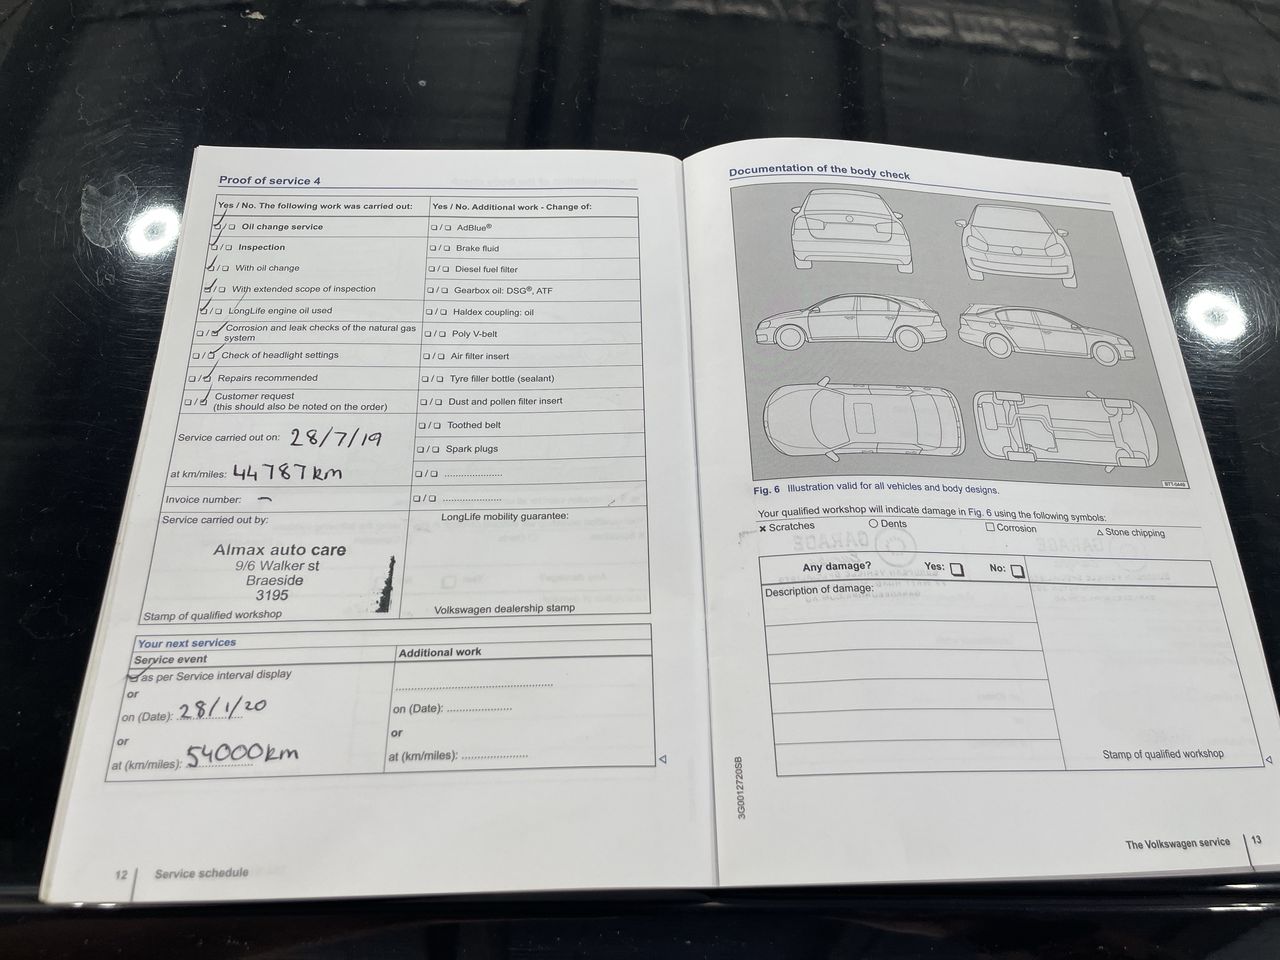 Proof of service 4
Yes / No. The following work was carried out:
❏/❏ Oil change service
❏/❏ Inspection
❏/❏ With oil change
❏/❏ With extended scope of inspection
❏/❏ LongLife engine oil used
❏/❏ Corrosion and leak checks of the natural gas
system
❏/❏ Check of headlight settings
❏/❏ Repairs recommended
❏/❏ Customer request
(this should also be noted on the order)
Service carried out on: 28/7/19
at km/miles: 44787km
Invoice number: –
Service carried out by:
Almax auto care
9/6 Walker st
Braeside
3195
Stamp of qualified workshop
Yes / No. Additional work - Change of:
❏/❏ AdBlue®
❏/❏ Brake fluid
❏/❏ Diesel fuel filter
❏/❏ Gearbox oil: DSG®, ATF
❏/❏ Haldex coupling: oil
❏/❏ Poly V-belt
❏/❏ Air filter insert
❏/❏ Tyre filler bottle (sealant)
❏/❏ Dust and pollen filter insert
❏/❏ Toothed belt
❏/❏ Spark plugs
❏/❏ .....................
❏/❏ .....................
LongLife mobility guarantee:
Volkswagen dealership stamp
Your next services
Service event
❏ as per Service interval display
or
on (Date): 28/1/20
or
at (km/miles): 54000km
Additional work
on (Date): .....................
or
at (km/miles): .....................
12 Service schedule
Documentation of the body check
Fig. 6 Illustration valid for all vehicles and body designs.
Your qualified workshop will indicate damage in Fig. 6 using the following symbols:
× Scratches ○ Dents □ Corrosion △ Stone chipping
Any damage? Yes: ❏ No: ❏
Description of damage:
Stamp of qualified workshop
3G0012720SB
The Volkswagen service 13